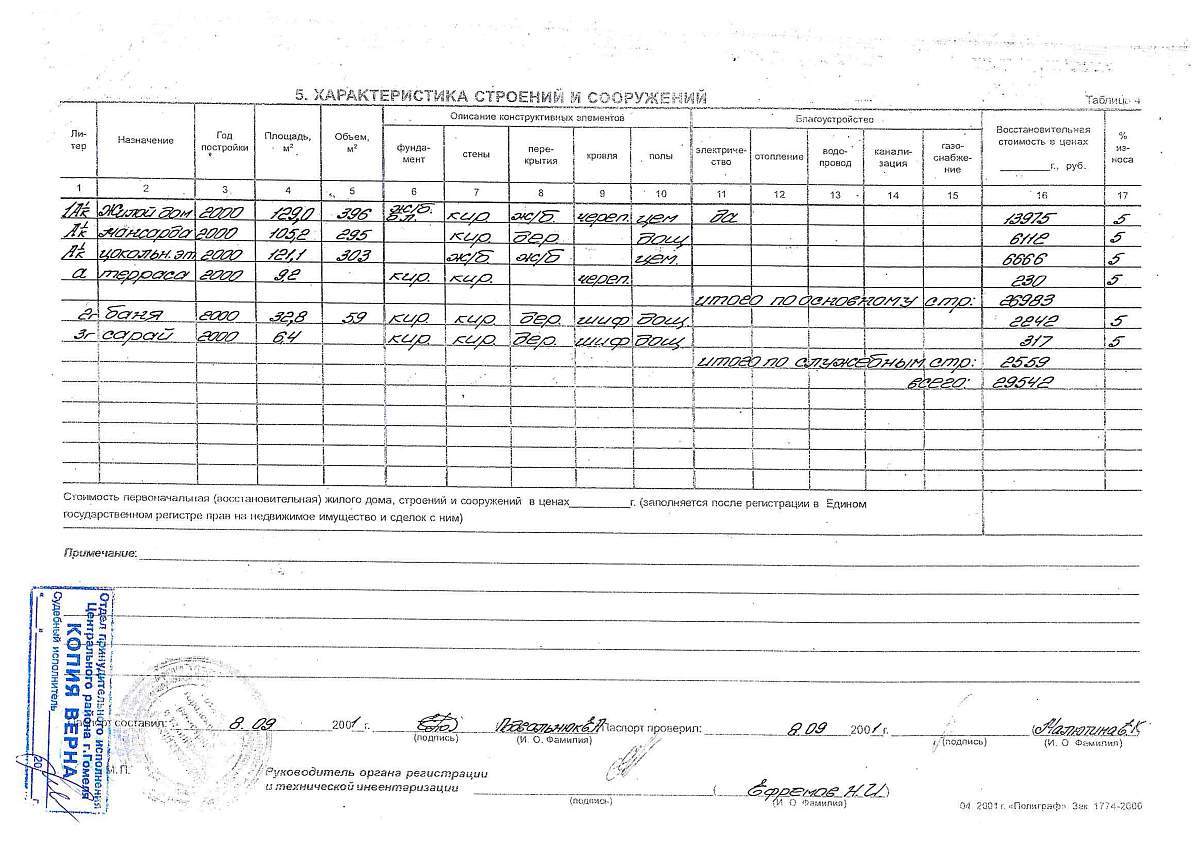 5. ХАРАКТЕРИСТИКА СТРОЕНИЙ И СООРУЖЕНИЙ
Таблица 4
Ли-тер Назначение Год постройки Площадь, м² Объем, м² Описание конструктивных элементов Благоустройство Восстановительная стоимость в ценах ______г., руб. % из-носа
фунда-мент стены пере-крытия кровля полы электриче-ство отопление водо-провод канали-зация газо-снабже-ние
1 2 3 4 5 6 7 8 9 10 11 12 13 14 15 16 17
Жилой дом 2000 129,0 396 ж/б. б.л. кир. ж/б. череп. цем да 13975 5
мансарда 2000 105,2 295 кир. дер. дощ 6112 5
цокольн.эт 2000 121,1 303 ж/б ж/б цем. 6666 5
а терраса 2000 9,2 кир. кир. череп. 230 5
итого по основному стр: 26983
2г баня 2000 32,8 59 кир. кир. дер. шиф дощ. 2242 5
3г сарай 2000 6,4 кир. кир. дер. шиф дощ. 317 5
итого по служебным стр: 2559
всего: 29542
Стоимость первоначальная (восстановительная) жилого дома, строений и сооружений в ценах_________г. (заполняется после регистрации в Едином
государственном регистре прав на недвижимое имущество и сделок с ним)
Примечание:
Отдел принудительного исполнения
Центрального района г.Гомеля
КОПИЯ ВЕРНА
Судебный исполнитель
20 г.
Паспорт составил: 8.09 2001 г. Паспорт проверил: 8.09 2001 г. (Малютина Е.К.)
(подпись) (И. О. Фамилия) (подпись) (И. О. Фамилия)
М.П.
Руководитель органа регистрации
и технической инвентаризации (Ефремов Н.И.)
(подпись) (И. О. Фамилия)
04. 2001 г. «Полиграф». Зак. 1774-2000